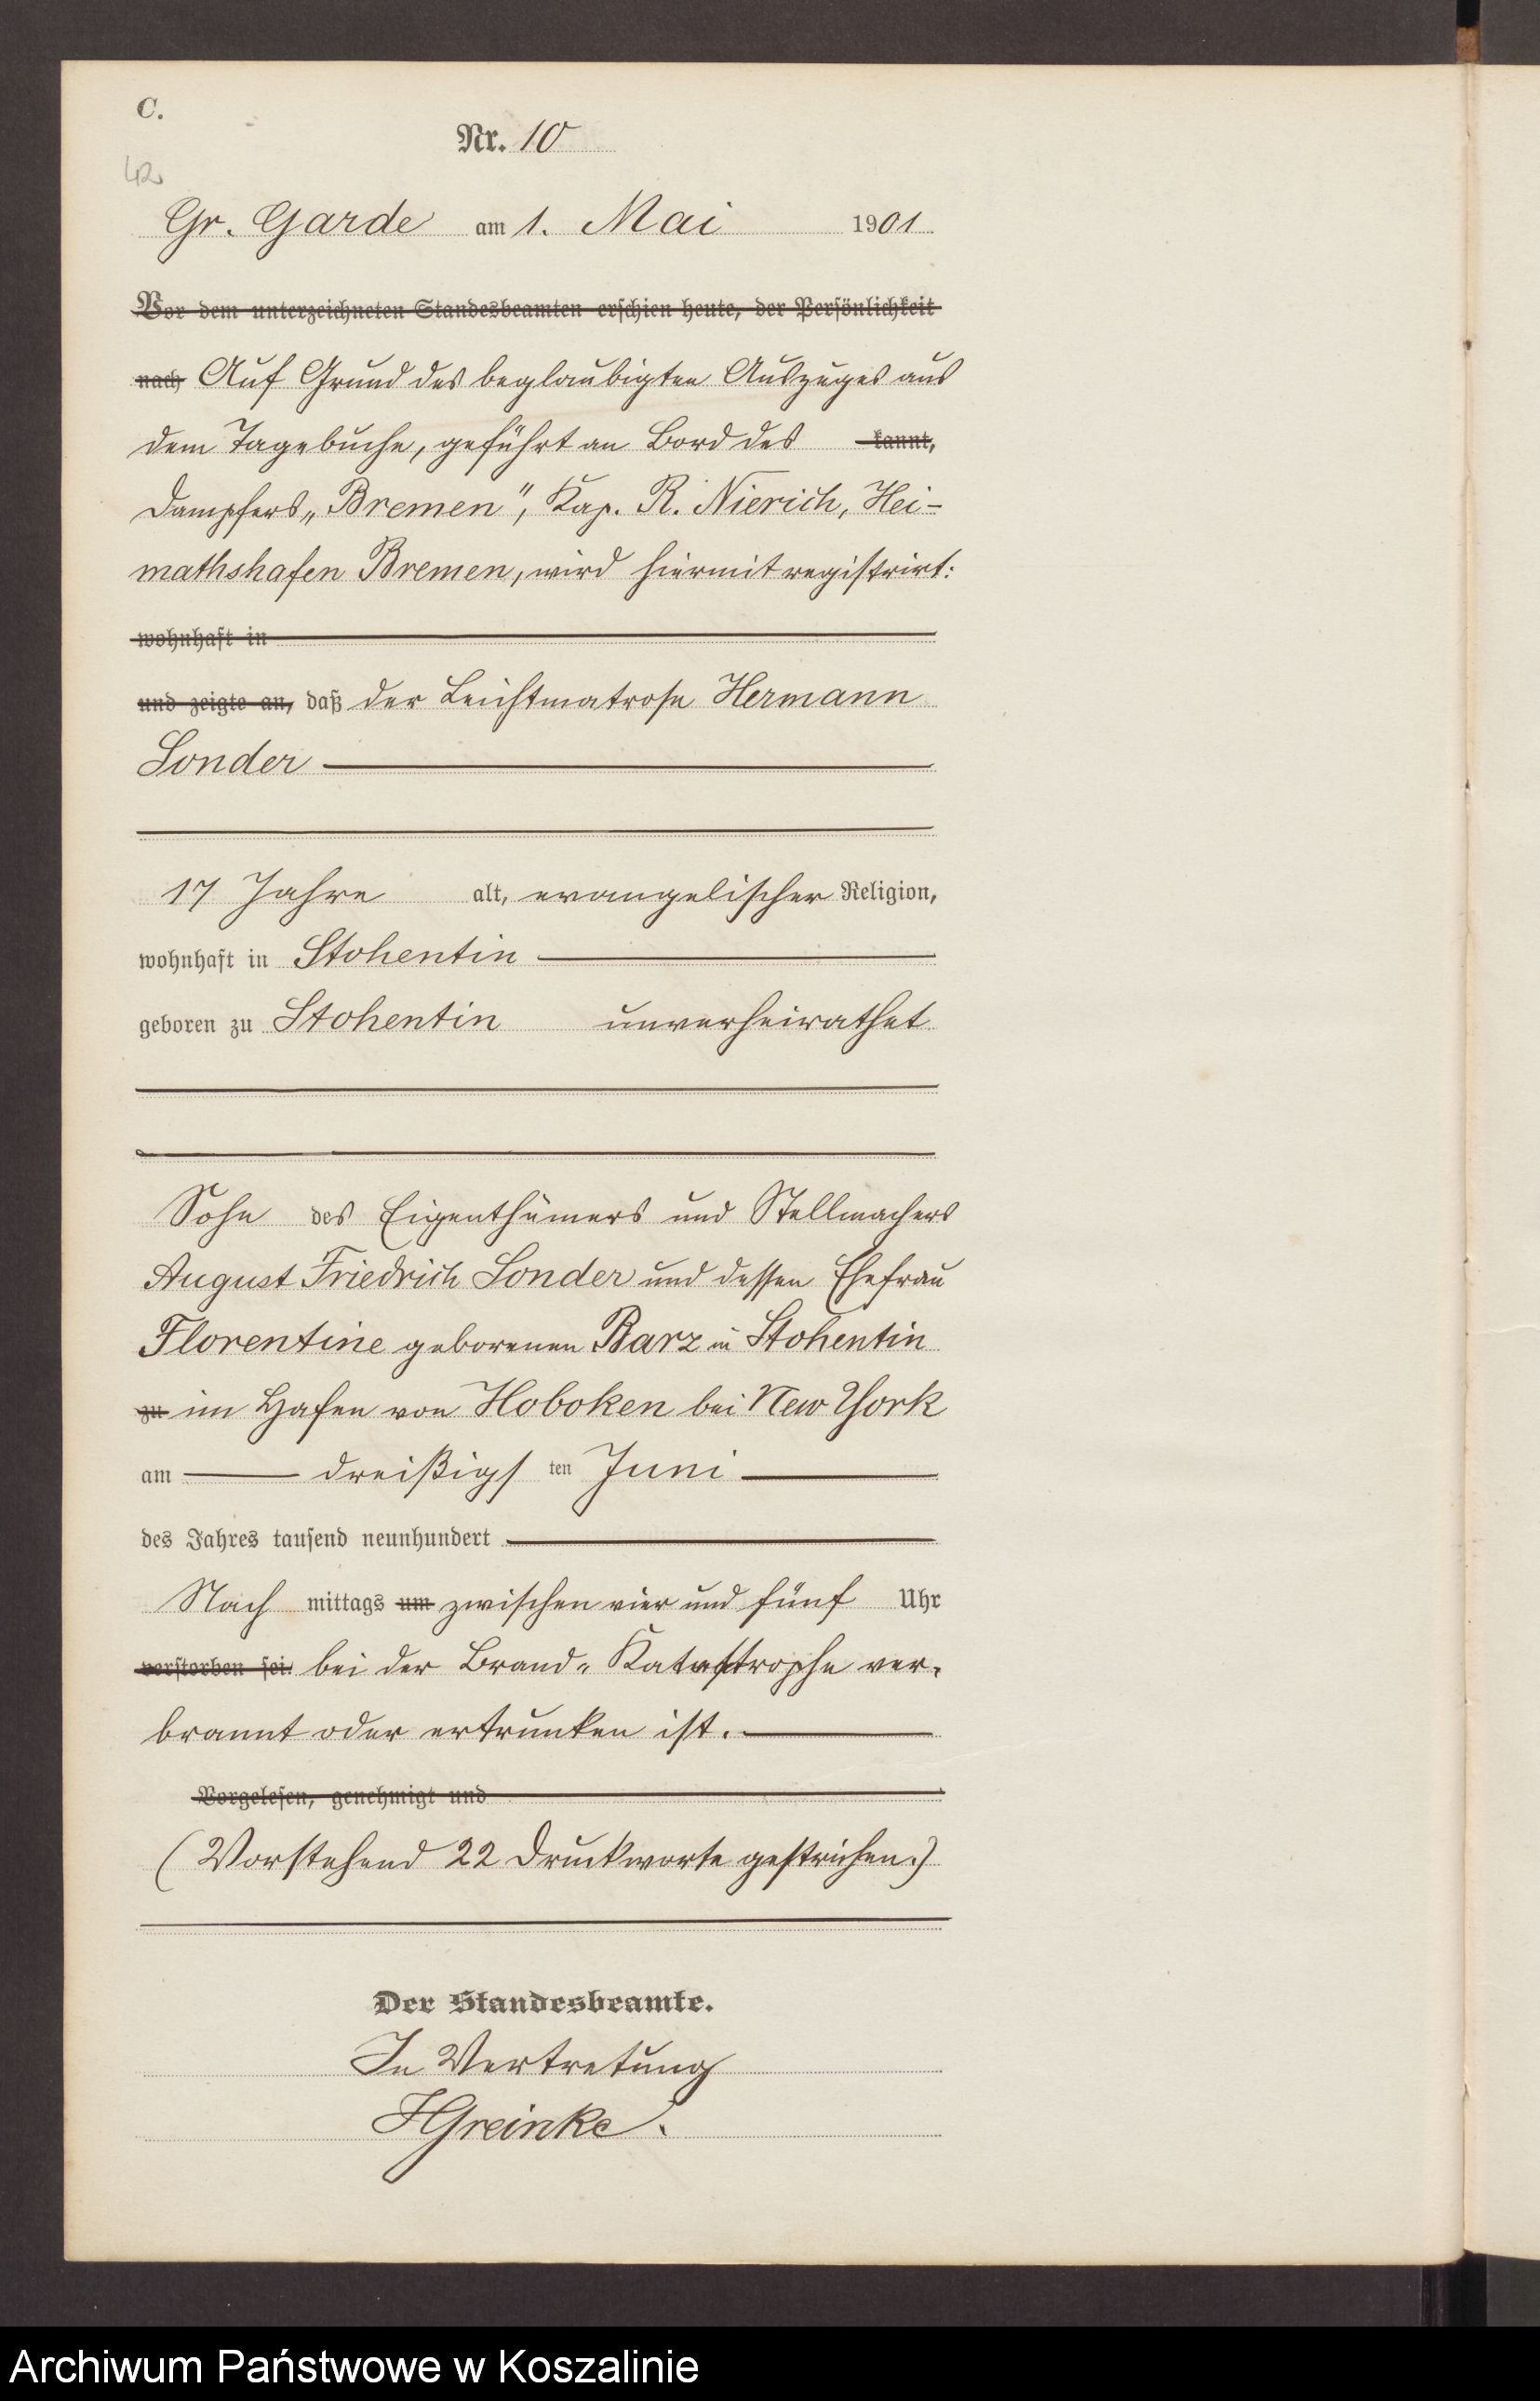 C.
Nr. 10
42
Gr. Garde am 1. Mai 1901
Vor dem unterzeichneten Standesbeamten erschien heute, der Persönlichkeit
nach Auf Grund des beglaubigten Auszuges aus
dem Tagebuche, geführt an Bord des kannt,
Dampfers „Bremen", Kap. R. Nierich, Hei-
mathshafen Bremen, wird hiermit registrirt:
wohnhaft in
und zeigte an, daß der Leichtmatrose Hermann
Sonder
17 Jahre alt, evangelischer Religion,
wohnhaft in Stohentin
geboren zu Stohentin unverheirathet
Sohn des Eigenthümers und Stellmachers
August Friedrich Sonder und dessen Ehefrau
Florentine geborenen Barz in Stohentin
zu im Hafen von Hoboken bei New York
am dreißigs ten Juni
des Jahres tausend neunhundert
Nach mittags um zwischen vier und fünf Uhr
verstorben sei. bei der Brand-Katastrophe ver-
brannt oder ertrunken ist.
Vorgelesen, genehmigt und
(Vorstehend 22 Druckworte gestrichen.)
Der Standesbeamte.
In Vertretung
HGreinke.
Archiwum Państwowe w Koszalinie